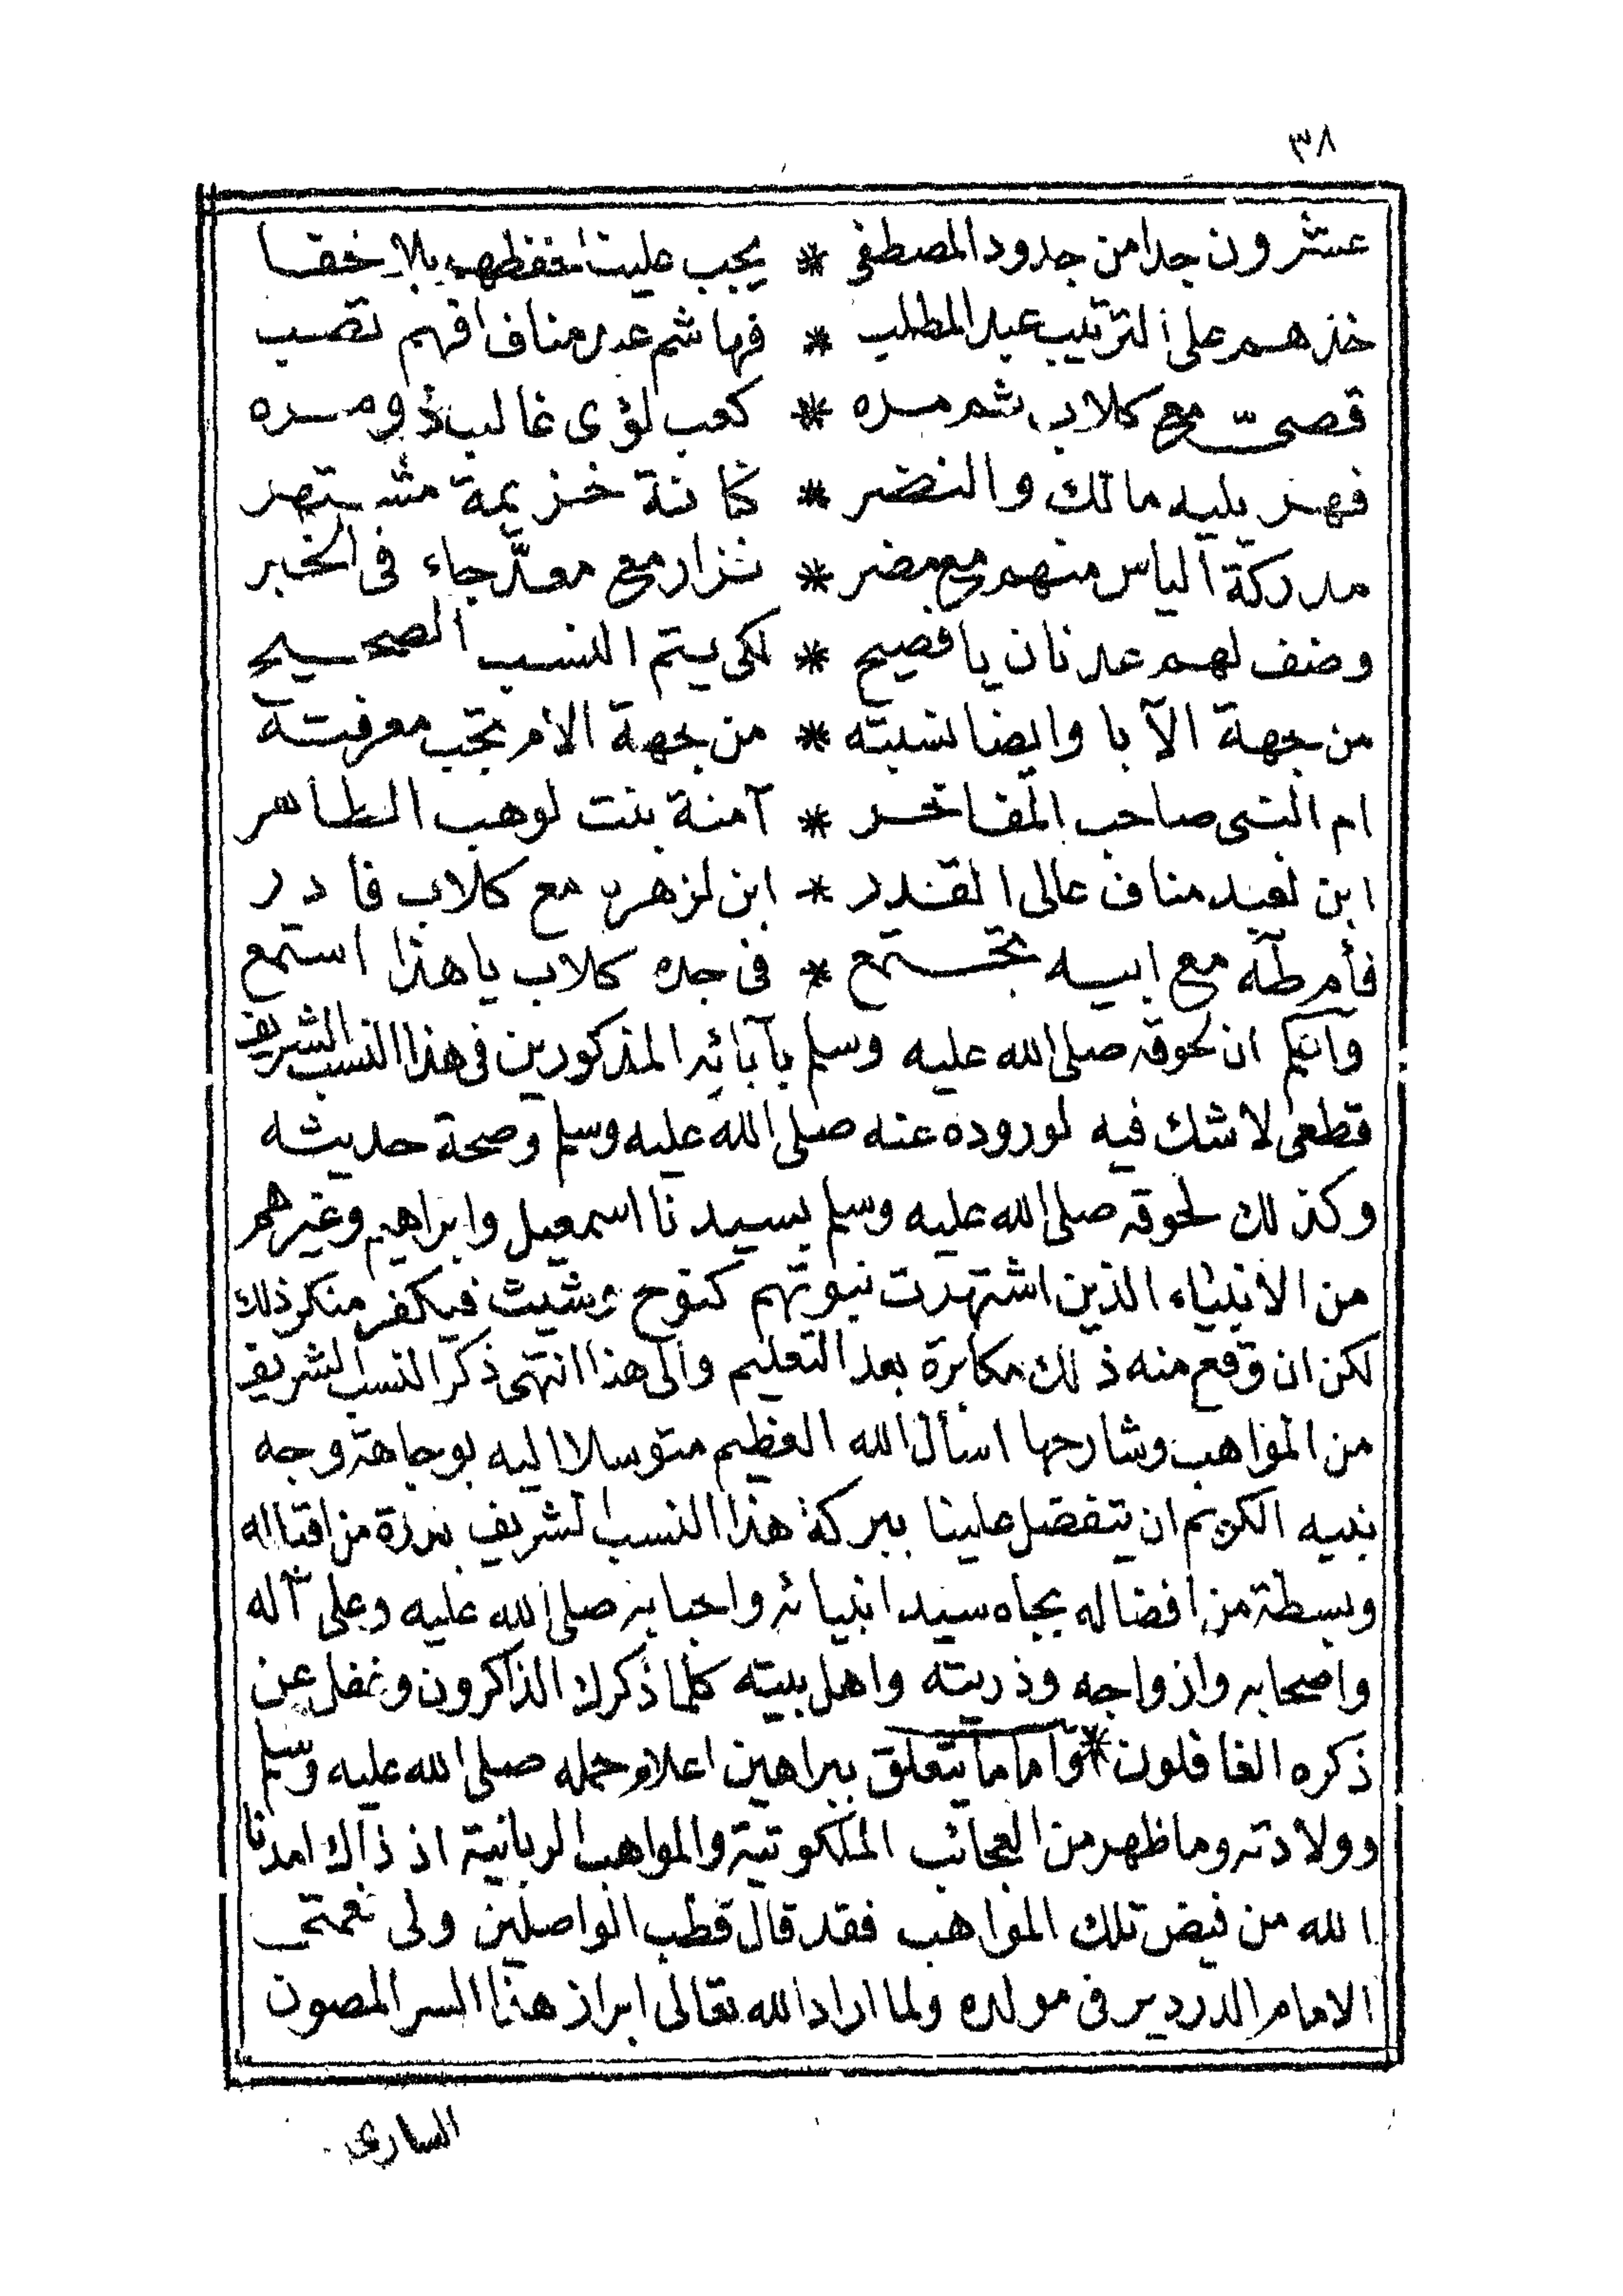 ٣٨
عشرون جدا من جدود المصطفى * يجب علينا حفظهم بلا خفا
خذهم على الترتيب عبد المطلب * فهاشم عبد مناف افهم تصب
قصىّ مع كلاب ثم مره * كعب لؤى غالب ذو مره
فهر يليه مالك والنضر * كنانة خزيمة مشتهر
مدركة الياس منهم مع مضر * نزار مع معدّ جاء فى الخبر
وضف لهم عدنان يا فصيح * لكى يتم النسب الصحيح
من جهة الآبا وايضا نسبته * من جهة الام تجب معرفته
ام النبى صاحب المفاخر * آمنة بنت لوهب الطاهر
ابن لعبد مناف عالى القدر * ابن لزهرة مع كلاب فادر
فأم طه مع ابيه تجتمع * فى جده كلاب يا هذا استمع
وانيكم ان لحوقه صلى الله عليه وسلم بآبائه المذكورين فى هذا النسب الشريف
قطعى لا شك فيه لوروده عنه صلى الله عليه وسلم وصحة حديثه
وكذلك لحوقه صلى الله عليه وسلم بسيدنا اسمعيل وابراهيم وغيرهم
من الانبياء الذين اشتهرت نبوتهم كنوح وشيث فيكفر منكر ذلك
لكن ان وقع منه ذلك مكابرة بعد التعليم والى هذا انتهى ذكر النسب الشريف
من المواهب وشارحها اسأل الله العظيم متوسلا اليه بوجاهة وجه
نبيه الكريم ان يتفضل علينا ببركة هذا النسب الشريف بدرة من اقباله
وبسطة من افضاله بجاه سيد انبيائه واحبابه صلى الله عليه وعلى آله
واصحابه وازواجه وذريته واهل بيته كلما ذكرك الذاكرون وغفل عن
ذكره الغافلون * واما ما يتعلق ببراهين اعلام حمله صلى الله عليه وسلم
وولادته وما ظهر من العجائب الملكوتية والمواهب الربانية اذ ذاك امدنا
الله من فيض تلك المواهب فقد قال قطب الواصلين ولى نعمتى
الامام الدردير فى مولده ولما اراد الله تعالى ابراز هذا السر المصون
السارى